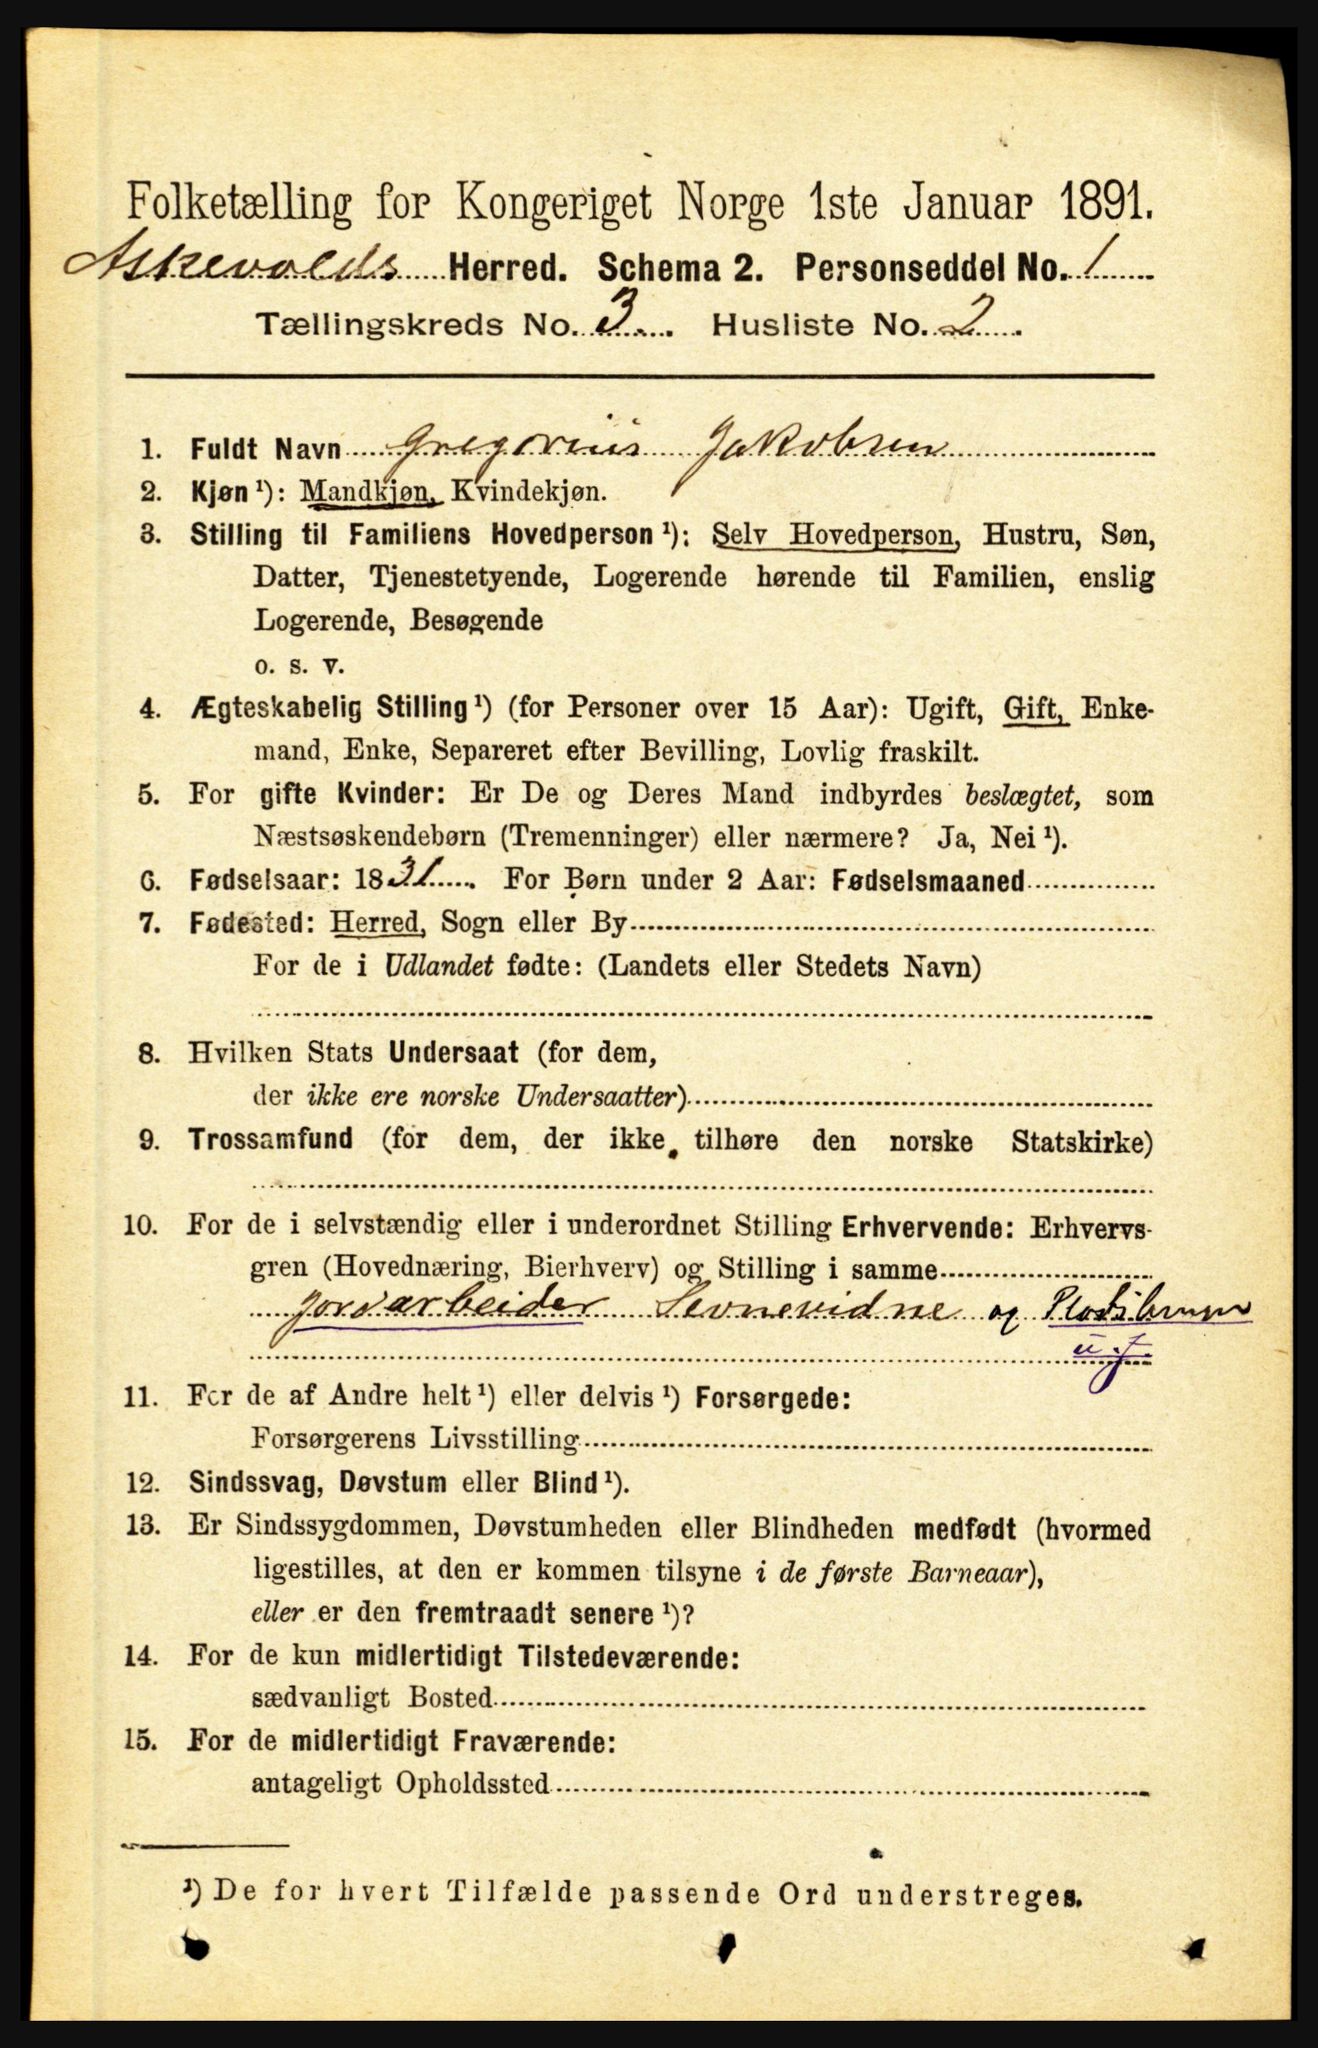 Folketælling for Kongeriget Norge 1ste Januar 1891.
Askevolds Herred. Schema 2. Personseddel No. 1
Tællingskreds No. 3. Husliste No. 2
1. Fuldt Navn Gregorius Jakobsen
2. Kjøn¹): Mandkjøn, Kvindekjøn.
3. Stilling til Familiens Hovedperson¹): Selv Hovedperson, Hustru, Søn,
Datter, Tjenestetyende, Logerende hørende til Familien, enslig
Logerende, Besøgende
o. s. v.
4. Ægteskabelig Stilling¹) (for Personer over 15 Aar): Ugift, Gift, Enke-
mand, Enke, Separeret efter Bevilling, Lovlig fraskilt.
5. For gifte Kvinder: Er De og Deres Mand indbyrdes beslægtet, som
Næstsøskendebørn (Tremenninger) eller nærmere? Ja, Nei¹).
6. Fødselsaar: 1831. For Børn under 2 Aar: Fødselsmaaned
7. Fødested: Herred, Sogn eller By
For de i Udlandet fødte: (Landets eller Stedets Navn)
8. Hvilken Stats Undersaat (for dem,
der ikke ere norske Undersaatter)
9. Trossamfund (for dem, der ikke tilhøre den norske Statskirke)
10. For de i selvstændig eller i underordnet Stilling Erhvervende: Erhvervs-
gren (Hovednæring, Bierhverv) og Stilling i samme
Jordarbeider Stevnevidne og
u. J.
11. For de af Andre helt¹) eller delvis¹) Forsørgede:
Forsørgerens Livsstilling
12. Sindssvag, Døvstum eller Blind¹).
13. Er Sindssygdommen, Døvstumheden eller Blindheden medfødt (hvormed
ligestilles, at den er kommen tilsyne i de første Barneaar),
eller er den fremtraadt senere¹)?
14. For de kun midlertidigt Tilstedeværende:
sædvanligt Bosted
15. For de midlertidigt Fraværende:
antageligt Opholdssted
¹) De for hvert Tilfælde passende Ord understreges.